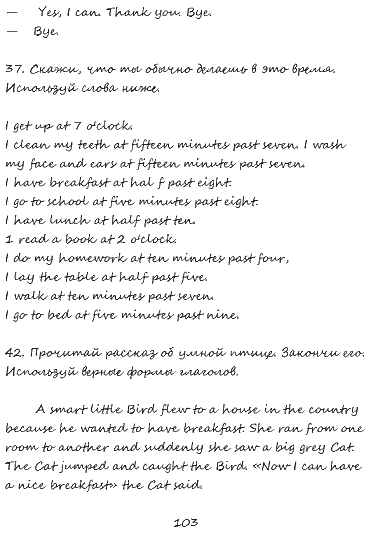 — Yes, I can. Thank you. Bye.
— Bye.
37. Скажи, что ты обычно делаешь в это время.
Используй слова ниже.
I get up at 7 o'clock.
I clean my teeth at fifteen minutes past seven. I wash
my face and ears at fifteen minutes past seven.
I have breakfast at hal f past eight.
I go to school at five minutes past eight.
I have lunch at half past ten.
1 read a book at 2 o'clock.
I do my homework at ten minutes past four,
I lay the table at half past five.
I walk at ten minutes past seven.
I go to bed at five minutes past nine.
42. Прочитай рассказ об умной птице. Закончи его.
Используй верные формы глаголов.
A smart little Bird flew to a house in the country
because he wanted to have breakfast. She ran from one
room to another and suddenly she saw a big grey Cat.
The Cat jumped and caught the Bird. «Now I can have
a nice breakfast» the Cat said.
103